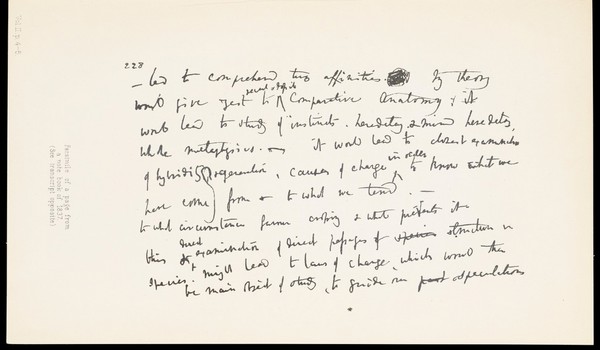 228
— led to comprehend true affinities. My theory
would give zest to recent & fossil Comparative Anatomy, & it
would lead to study of instincts, heredetary & mind heredetary,
whole metaphysics. — it would lead to closest examination
of hybridity generation, causes of change in order to know what we
have come from & to what we tend. —
to what circumstances favour crossing & what prevents it
this direct examination of direct passages of species structure in
species might lead to laws of change, which would then
be main object of study, to guide our past speculations
Facsimile of a page from
a note book of 1837.
(See transcript opposite)